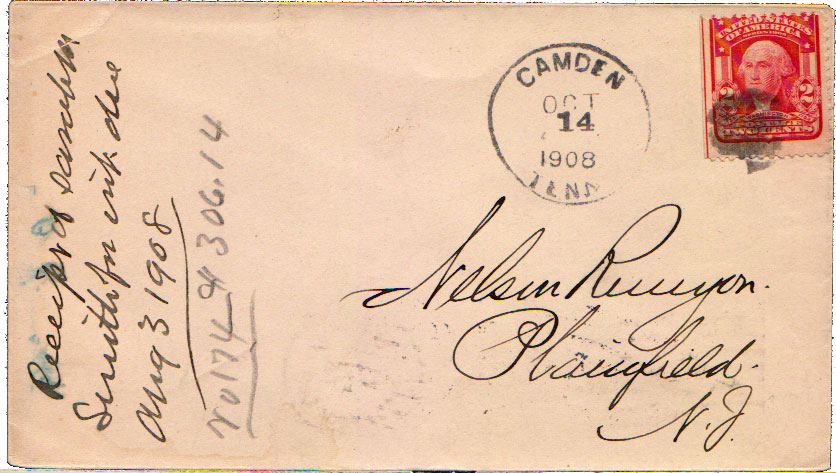 CAMDEN
OCT
14
1908
TENN
UNITED STATES
OF AMERICA
SERIES 1902
2 2
TWO CENTS
Nelson Runyon.
Plainfield.
N.J.
Receipt of
Smith for int. due
Aug 3 1908
306.14